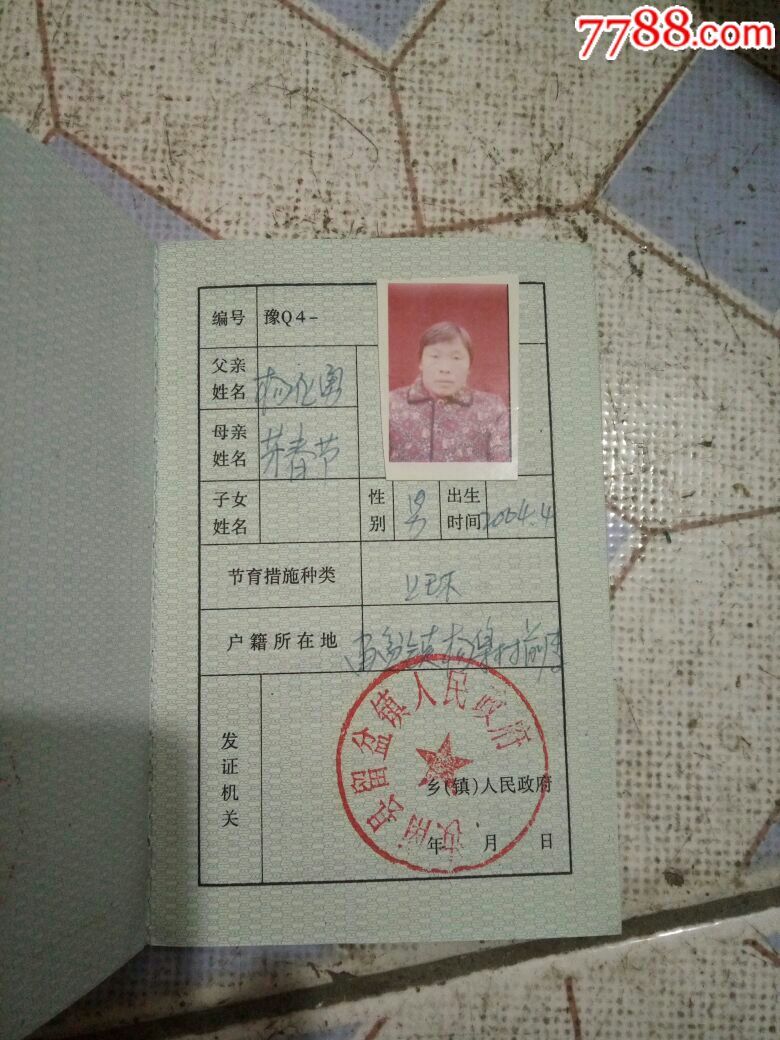 7788.com
编号 豫Q4-
父亲姓名
母亲姓名 春节
子女姓名 性别 男 出生时间 2004.4
节育措施种类 上环
户籍所在地 留盆镇
汝南县留盆镇人民政府
发证机关
乡(镇)人民政府
年 月 日